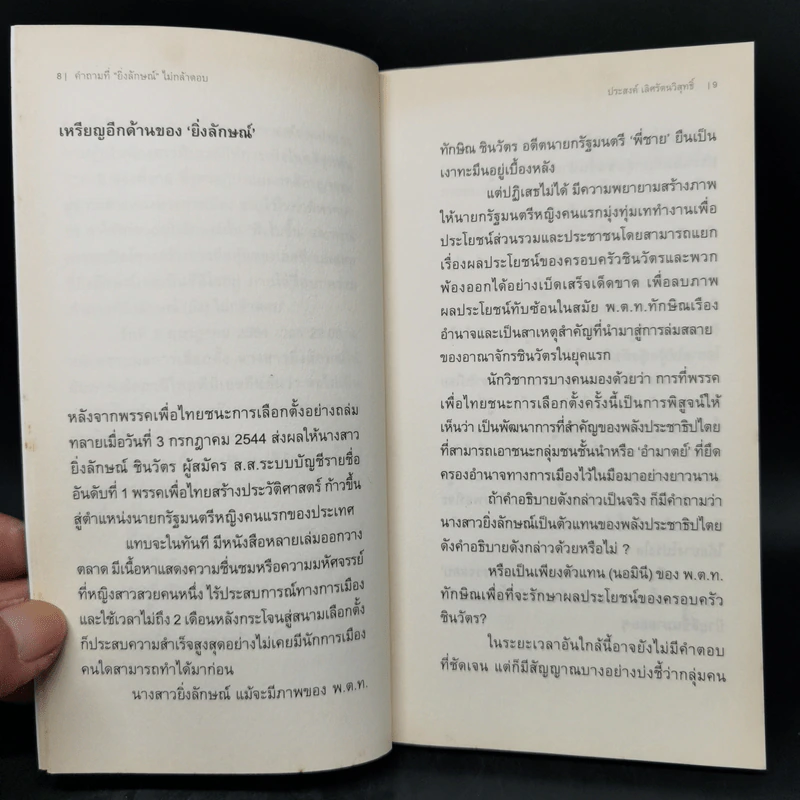 8 | คำถามที่ "ยิ่งลักษณ์" ไม่กล้าตอบ
เหรียญอีกด้านของ 'ยิ่งลักษณ์'
หลังจากพรรคเพื่อไทยชนะการเลือกตั้งอย่างถล่ม
ทลายเมื่อวันที่ 3 กรกฎาคม 2544 ส่งผลให้นางสาว
ยิ่งลักษณ์ ชินวัตร ผู้สมัคร ส.ส.ระบบบัญชีรายชื่อ
อันดับที่ 1 พรรคเพื่อไทยสร้างประวัติศาสตร์ ก้าวขึ้น
สู่ตำแหน่งนายกรัฐมนตรีหญิงคนแรกของประเทศ
แทบจะในทันที มีหนังสือหลายเล่มออกวาง
ตลาด มีเนื้อหาแสดงความชื่นชมหรือความมหัศจรรย์
ที่หญิงสาวสวยคนหนึ่ง ไร้ประสบการณ์ทางการเมือง
และใช้เวลาไม่ถึง 2 เดือนหลังกระโจนสู่สนามเลือกตั้ง
ก็ประสบความสำเร็จสูงสุดอย่างไม่เคยมีนักการเมือง
คนใดสามารถทำได้มาก่อน
นางสาวยิ่งลักษณ์ แม้จะมีภาพของ พ.ต.ท.
ประสงค์ เลิศรัตนวิสุทธิ์ | 9
ทักษิณ ชินวัตร อดีตนายกรัฐมนตรี 'พี่ชาย' ยืนเป็น
เงาทะมึนอยู่เบื้องหลัง
แต่ปฏิเสธไม่ได้ มีความพยายามสร้างภาพ
ให้นายกรัฐมนตรีหญิงคนแรกมุ่งทุ่มเททำงานเพื่อ
ประโยชน์ส่วนรวมและประชาชนโดยสามารถแยก
เรื่องผลประโยชน์ของครอบครัวชินวัตรและพวก
พ้องออกได้อย่างเบ็ดเสร็จเด็ดขาด เพื่อลบภาพ
ผลประโยชน์ทับซ้อนในสมัย พ.ต.ท.ทักษิณเรือง
อำนาจและเป็นสาเหตุสำคัญที่นำมาสู่การล่มสลาย
ของอาณาจักรชินวัตรในยุคแรก
นักวิชาการบางคนมองด้วยว่า การที่พรรค
เพื่อไทยชนะการเลือกตั้งครั้งนี้เป็นการพิสูจน์ให้
เห็นว่า เป็นพัฒนาการที่สำคัญของพลังประชาธิปไตย
ที่สามารถเอาชนะกลุ่มชนชั้นนำหรือ 'อำมาตย์' ที่ยึด
ครองอำนาจทางการเมืองไว้ในมือมาอย่างยาวนาน
ถ้าคำอธิบายดังกล่าวเป็นจริง ก็มีคำถามว่า
นางสาวยิ่งลักษณ์เป็นตัวแทนของพลังประชาธิปไตย
ดังคำอธิบายดังกล่าวด้วยหรือไม่ ?
หรือเป็นเพียงตัวแทน (นอมินี) ของ พ.ต.ท.
ทักษิณเพื่อที่จะรักษาผลประโยชน์ของครอบครัว
ชินวัตร?
ในระยะเวลาอันใกล้นี้อาจยังไม่มีคำตอบ
ที่ชัดเจน แต่ก็มีสัญญาณบางอย่างบ่งชี้ว่ากลุ่มคน